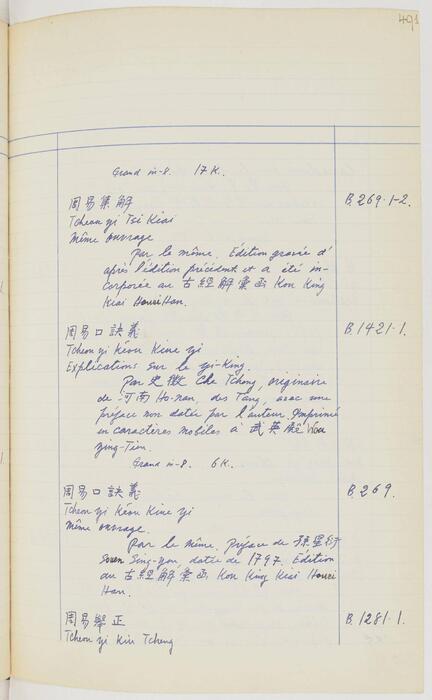 491
Grand in-8. 17 K.
周易集解 B.269.1-2.
Tcheou yi Tsi Kiai
Même ouvrage
Par le même. Edition gravée d'
après l'édition précédent et a été in-
corporée au 古經解彙函 Kou King
Kiai Houei Han.
周易口訣義 B.1421.1.
Tcheou yi Kéou Kiue yi
Explications sur le yi-King.
Par 史徵 Che Tcheng, originaire
de 河南 Ho-nan, des Tang, avec une
préface non datée par l'auteur. Imprimé
en caractères mobiles à 武英殿 Wou
ying-Tien.
Grand in-8. 6 K.
周易口訣義 B.269.
Tcheou yi Kéou Kiue yi
Même ouvrage.
Par le même. Préface de 孫星衍
Souen Sing-yen, datée de 1797. Edition
au 古經解彙函 Kou King Kiai Houei
Han.
周易舉正 B.1281.1.
Tcheou yi Kiu Tcheng